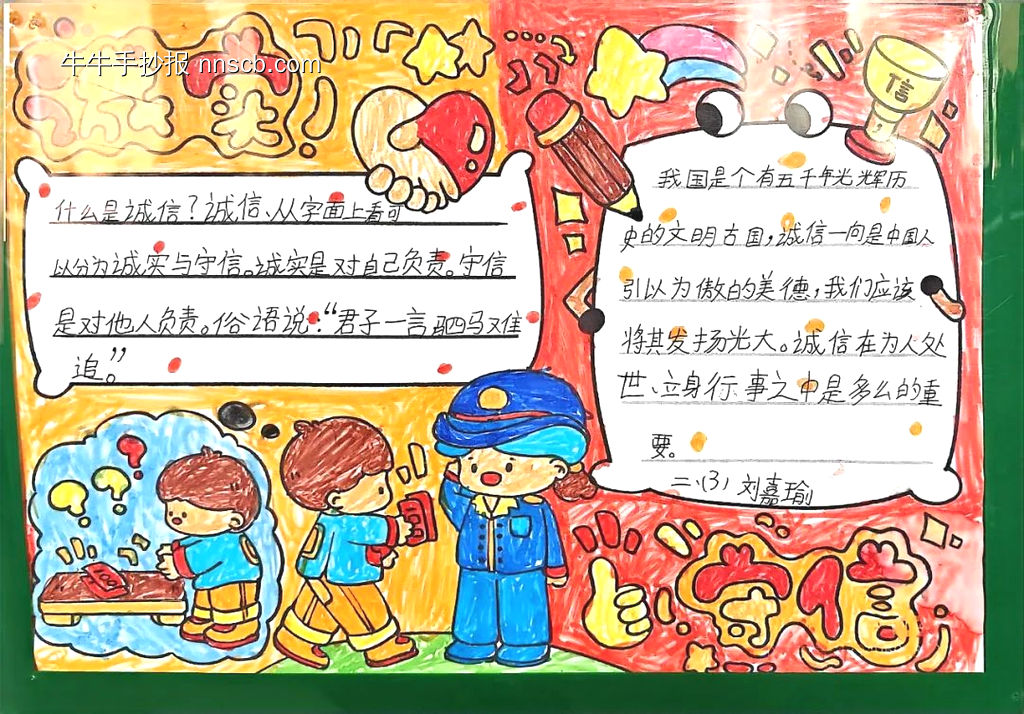 牛牛手抄报 nnscb.com
诚实
什么是诚信？诚信、从字面上看可
以分为诚实与守信。诚实是对自己负责。守信
是对他人负责。俗语说：“君子一言驷马难
追。”
信
我国是个有五千年光辉历
史的文明古国，诚信一向是中国人
引以为傲的美德，我们应该
将其发扬光大。诚信在为人处
世、立身行、事之中是多么的重
要。
二、(3) 刘嘉瑜
守信